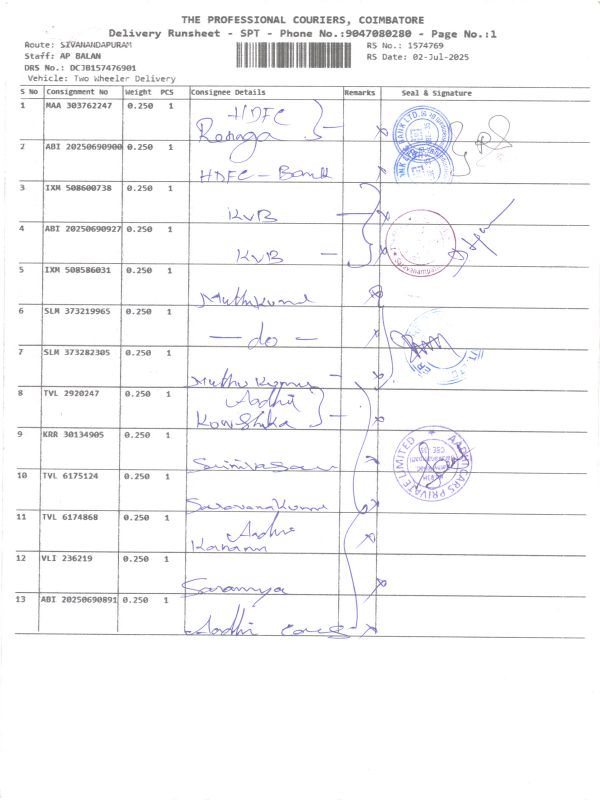 THE PROFESSIONAL COURIERS, COIMBATORE
Delivery Runsheet - SPT - Phone No.:9047080280 - Page No.:1
Route: SIVANANDAPURAM
RS No.: 1574769
Staff: AP BALAN
RS Date: 02-Jul-2025
DRS No.: DCJB157476901
Vehicle: Two Wheeler Delivery
S No Consignment No Weight PCS Consignee Details Remarks Seal & Signature
1 MAA 303762247 0.250 1 HDFC
Renga
2 ABI 20250690900 0.250 1
HDFC - Bank
3 IXM 508600738 0.250 1
KVB
4 ABI 20250690927 0.250 1
KVB
5 IXM 508586031 0.250 1
Muthukumar
6 SLM 373219965 0.250 1
- do -
7 SLM 373282305 0.250 1
Muthu Kumar
8 TVL 2920247 0.250 1 Aadhi
Kowshika
9 KRR 30134905 0.250 1
Srinivasan
10 TVL 6175124 0.250 1
Saravana Kumar
11 TVL 6174868 0.250 1 Aadhi
Kannan
12 VLI 236219 0.250 1
Saranya
13 ABI 20250690891 0.250 1
Aadhi Cars
BANK LTD.
AADHI CARS PRIVATE LIMITED